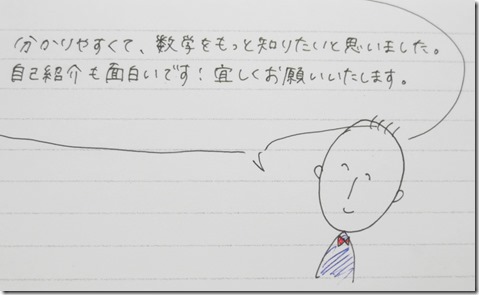 分かりやすくて、数学をもっと知りたいと思いました。
自己紹介も面白いです！宜しくお願いいたします。